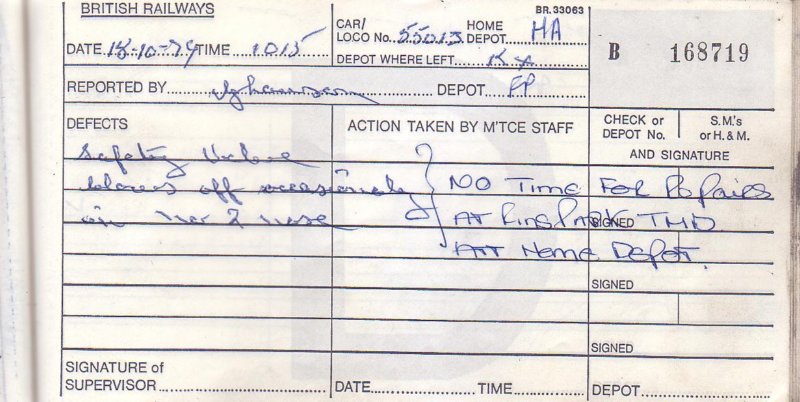 BRITISH RAILWAYS
BR.33063
DATE 18-10-79 TIME 1015
CAR/ LOCO No. 55013 HOME DEPOT HA
DEPOT WHERE LEFT K X
B 168719
REPORTED BY DEPOT FP
DEFECTS
ACTION TAKEN BY M'TCE STAFF
CHECK or DEPOT No.
S.M.'s or H. & M.
AND SIGNATURE
Safety Valve
blows off occasionaly
in No 2 nose
NO Time For Repairs
AT Fins Park TMD
ATT Home Depot.
SIGNED
SIGNED
SIGNED
SIGNATURE of
SUPERVISOR
DATE TIME DEPOT